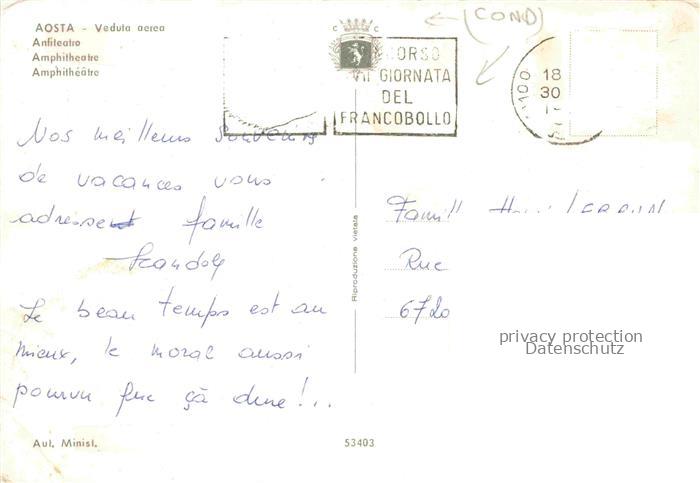 AOSTA - Veduta aerea
Anfiteatro
Amphitheatre
Amphithéâtre
(COND)
C C
CORSO
VII GIORNATA
DEL
FRANCOBOLLO
1100
18
30
Nos meilleurs souvenirs
de vacances vous
adressent famille
Le beau temps est au
mieux, le moral aussi
pourvu que çà dure !...
Riproduzione vietata
Famill
Rue
6720
privacy protection
Datenschutz
Aut. Minist.
53403